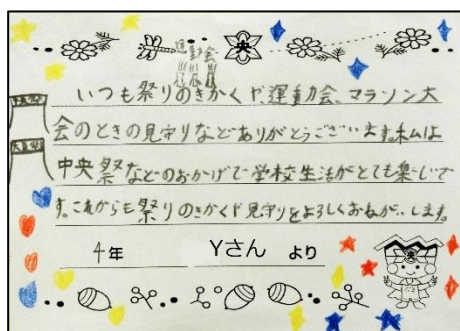 運動会
いつも祭りのきかくや、運動会、マラソン大
会のときの見守りなどありがとうございます。私は
中央祭などのおかげで学校生活がとても楽しいで
す。これからも祭りのきかくや見守りをよろしくおねがいします。
4年 Yさん より